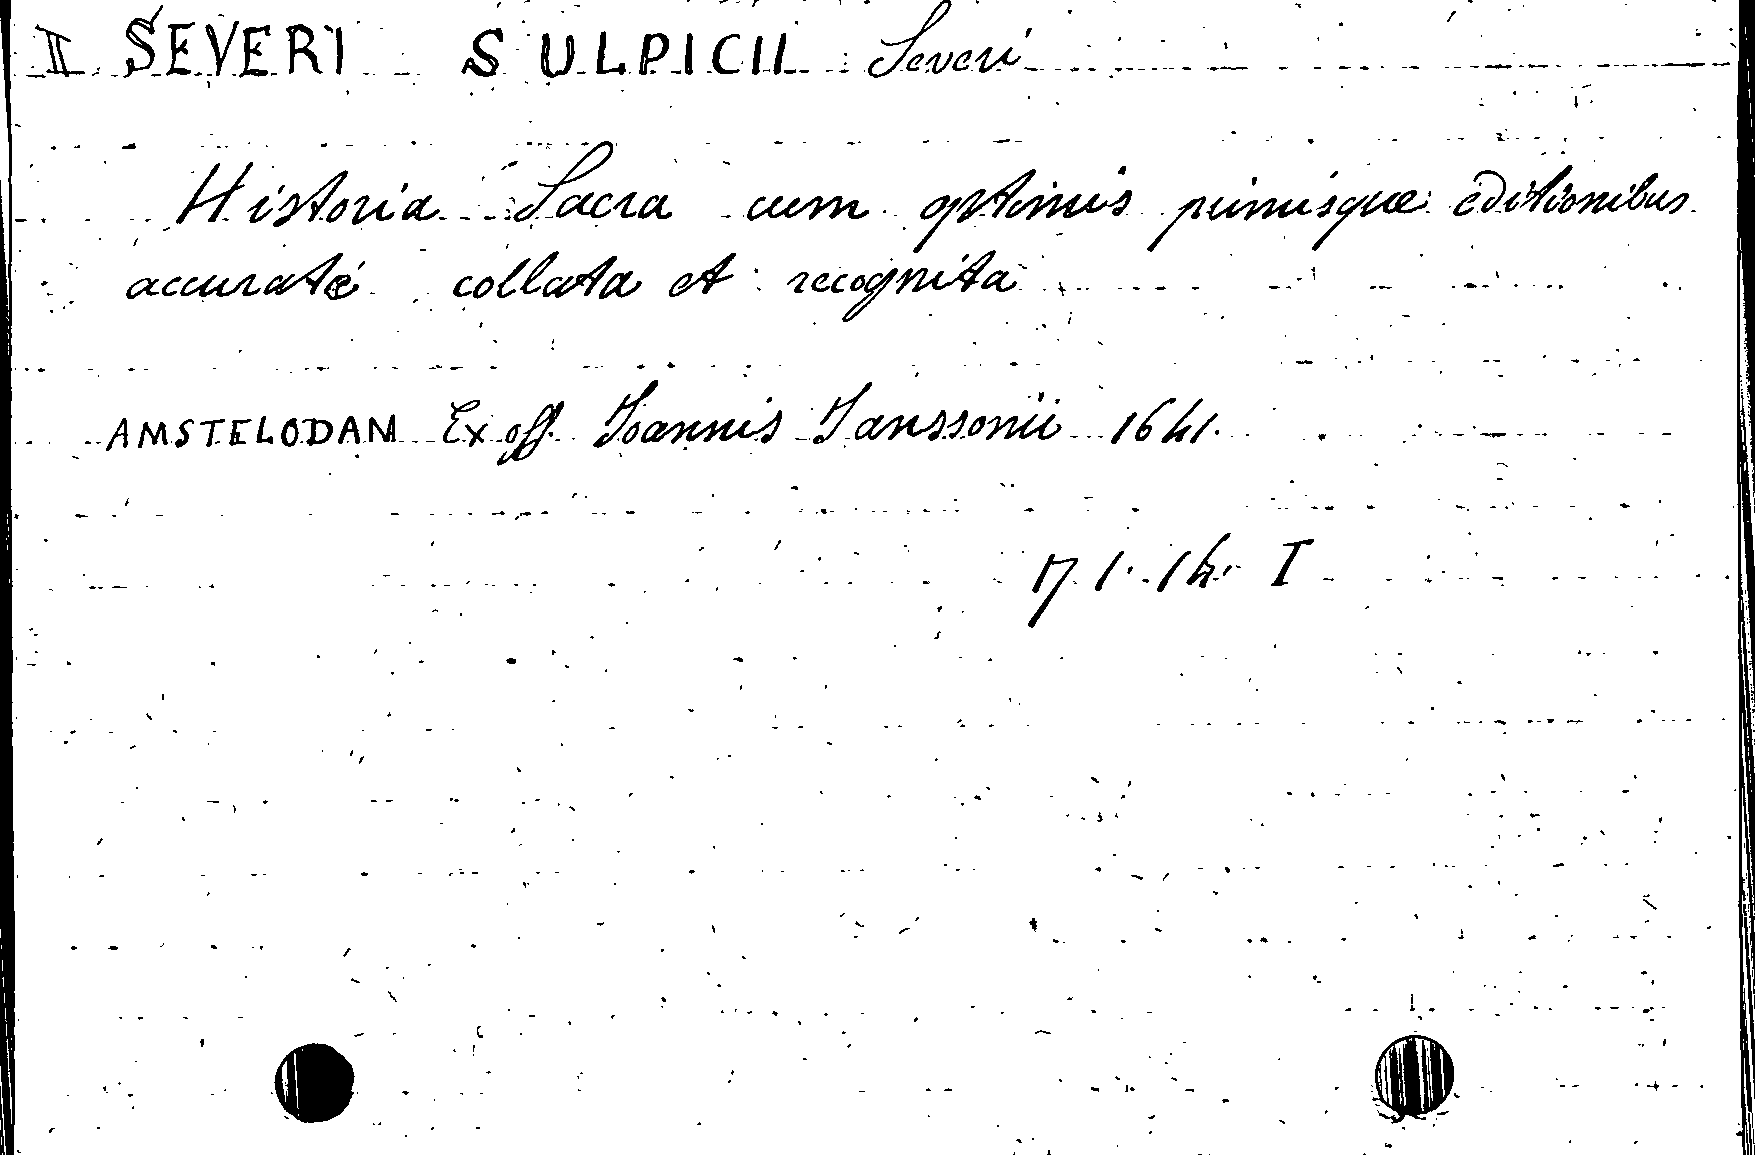 II SEVERI SULPICII Severi
Historia Sacra cum optimis primisque editionibus
accuraté collata et recognita
AMSTELODAM Ex off. Joannis Janssonii 1641.
17. 1. 14. I